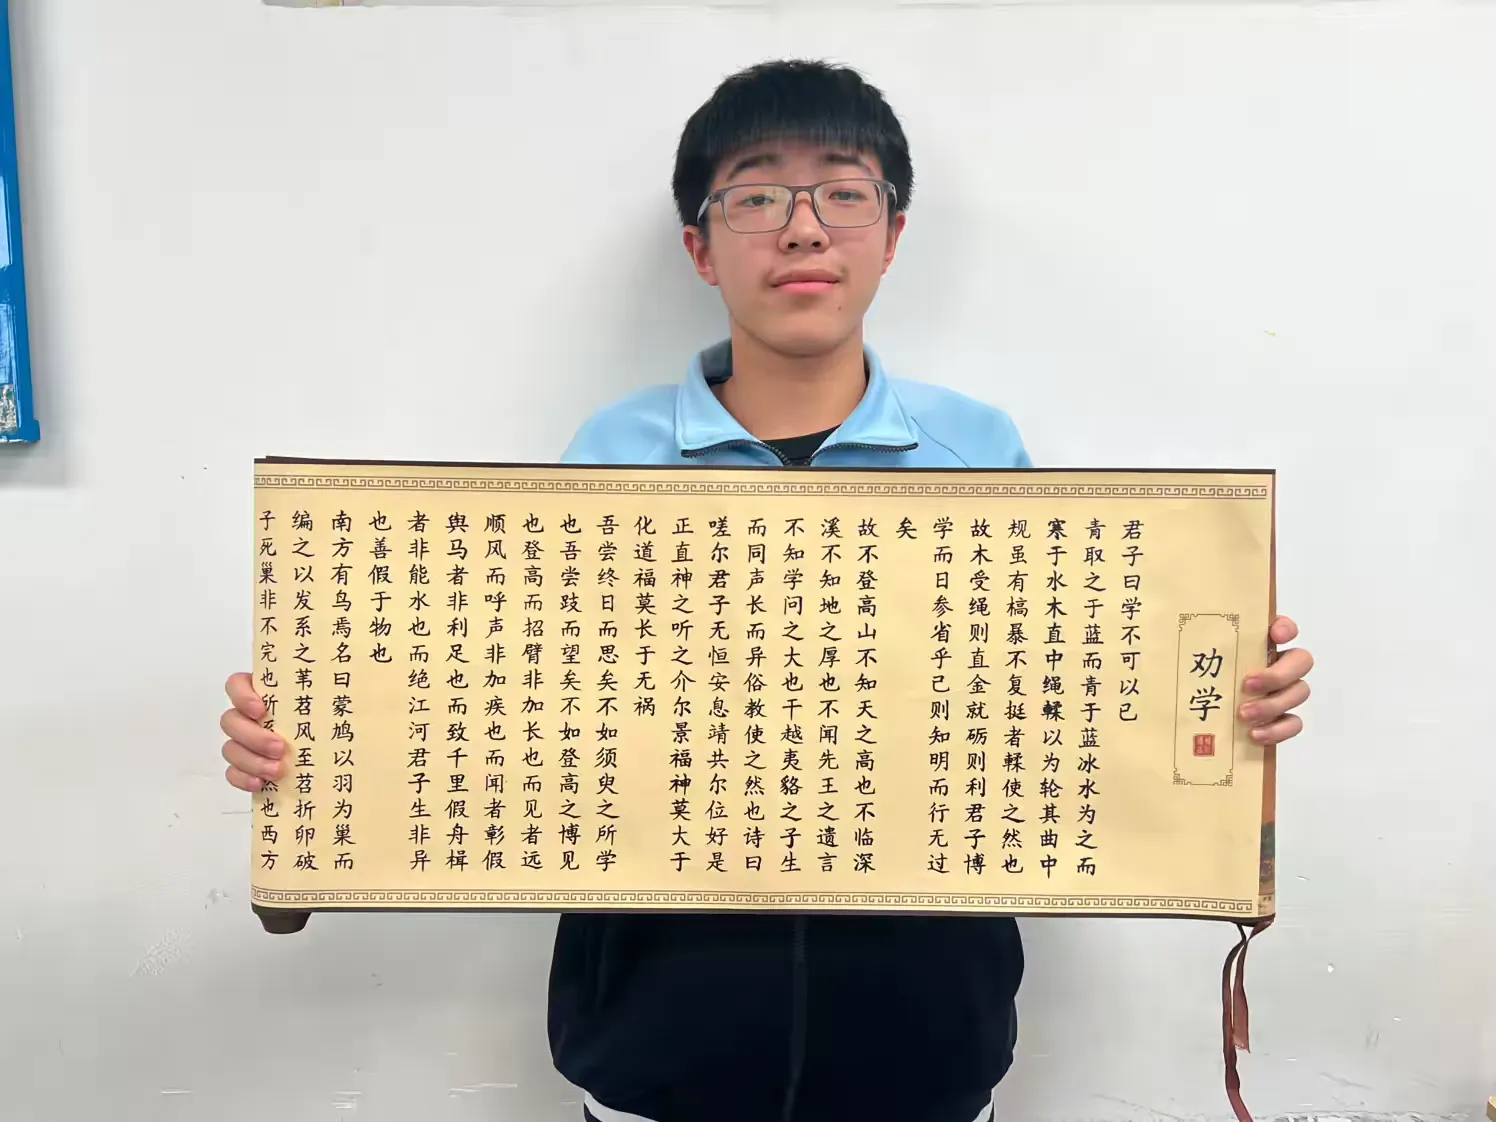 劝学
君子曰学不可以已
青取之于蓝而青于蓝冰水为之而
寒于水木直中绳輮以为轮其曲中
规虽有槁暴不复挺者輮使之然也
故木受绳则直金就砺则利君子博
学而日参省乎己则知明而行无过
矣
故不登高山不知天之高也不临深
溪不知地之厚也不闻先王之遗言
不知学问之大也干越夷貉之子生
而同声长而异俗教使之然也诗曰
嗟尔君子无恒安息靖共尔位好是
正直神之听之介尔景福神莫大于
化道福莫长于无祸
吾尝终日而思矣不如须臾之所学
也吾尝跂而望矣不如登高之博见
也登高而招臂非加长也而见者远
顺风而呼声非加疾也而闻者彰假
舆马者非利足也而致千里假舟楫
者非能水也而绝江河君子生非异
也善假于物也
南方有鸟焉名曰蒙鸠以羽为巢而
编之以发系之苇苕风至苕折卵破
子死巢非不完也所系然也西方